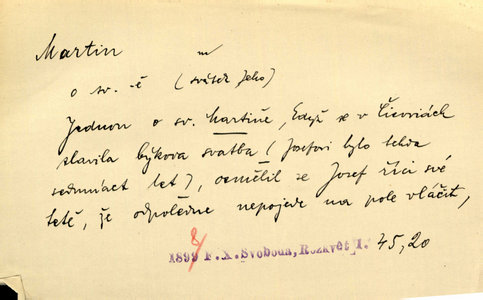 Martin m
o sv. -ě (svátek jeho)
Jednou o sv. Martině, když se v
slavila býkova svatba (Josefovi bylo tehda
sedmnáct let), osmělil se Josef říci své
tetě, že odpoledne nepojede na pole vláčit,
1898 F. X. Svoboda, Rozkvět, I. 45, 20